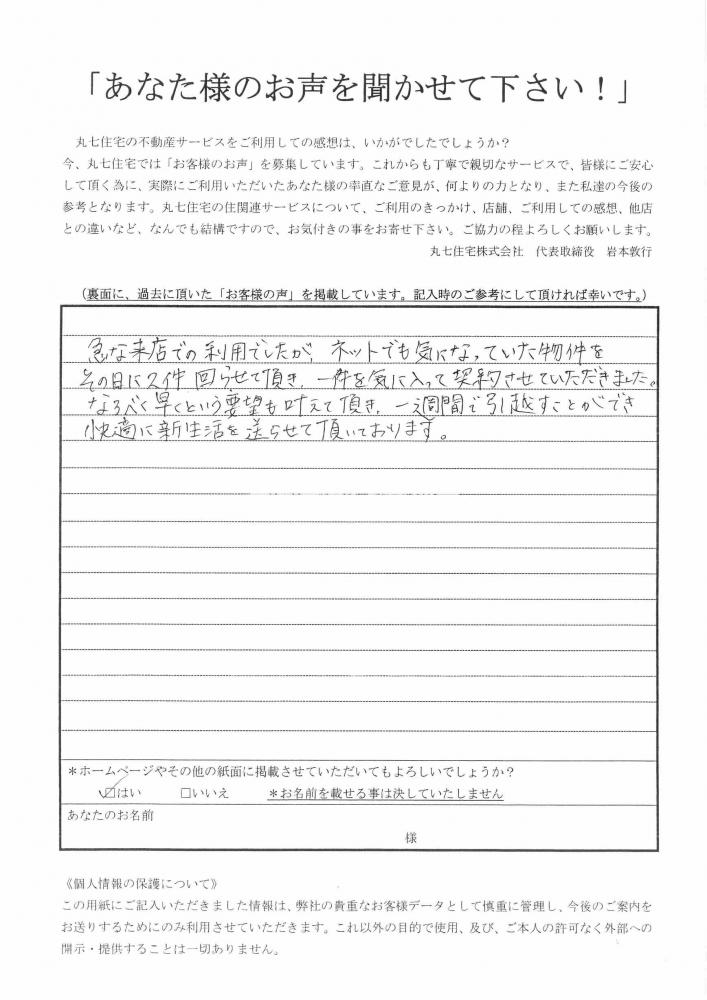 「あなた様のお声を聞かせて下さい！」
丸七住宅の不動産サービスをご利用しての感想は、いかがでしたでしょうか？
今、丸七住宅では「お客様のお声」を募集しています。これからも丁寧で親切なサービスで、皆様にご安心
して頂く為に、実際にご利用いただいたあなた様の率直なご意見が、何よりの力となり、また私達の今後の
参考となります。丸七住宅の住関連サービスについて、ご利用のきっかけ、店舗、ご利用しての感想、他店
との違いなど、なんでも結構ですので、お気付きの事をお寄せ下さい。ご協力の程よろしくお願いします。
丸七住宅株式会社　代表取締役　岩本敦行
（裏面に、過去に頂いた「お客様の声」を掲載しています。記入時のご参考にして頂ければ幸いです。）
急な来店での利用でしたが、ネットでも気になっていた物件を
その日に2件 回らせて頂き、一件を気に入って契約させていただきました。
なるべく早くという要望も叶えて頂き、一週間で引越すことができ
快適に新生活を送らせて頂いております。
＊ホームページやその他の紙面に掲載させていただいてもよろしいでしょうか？
☑はい　　□いいえ　　＊お名前を載せる事は決していたしません
あなたのお名前
様
《個人情報の保護について》
この用紙にご記入いただきました情報は、弊社の貴重なお客様データとして慎重に管理し、今後のご案内を
お送りするためにのみ利用させていただきます。これ以外の目的で使用、及び、ご本人の許可なく外部への
開示・提供することは一切ありません。